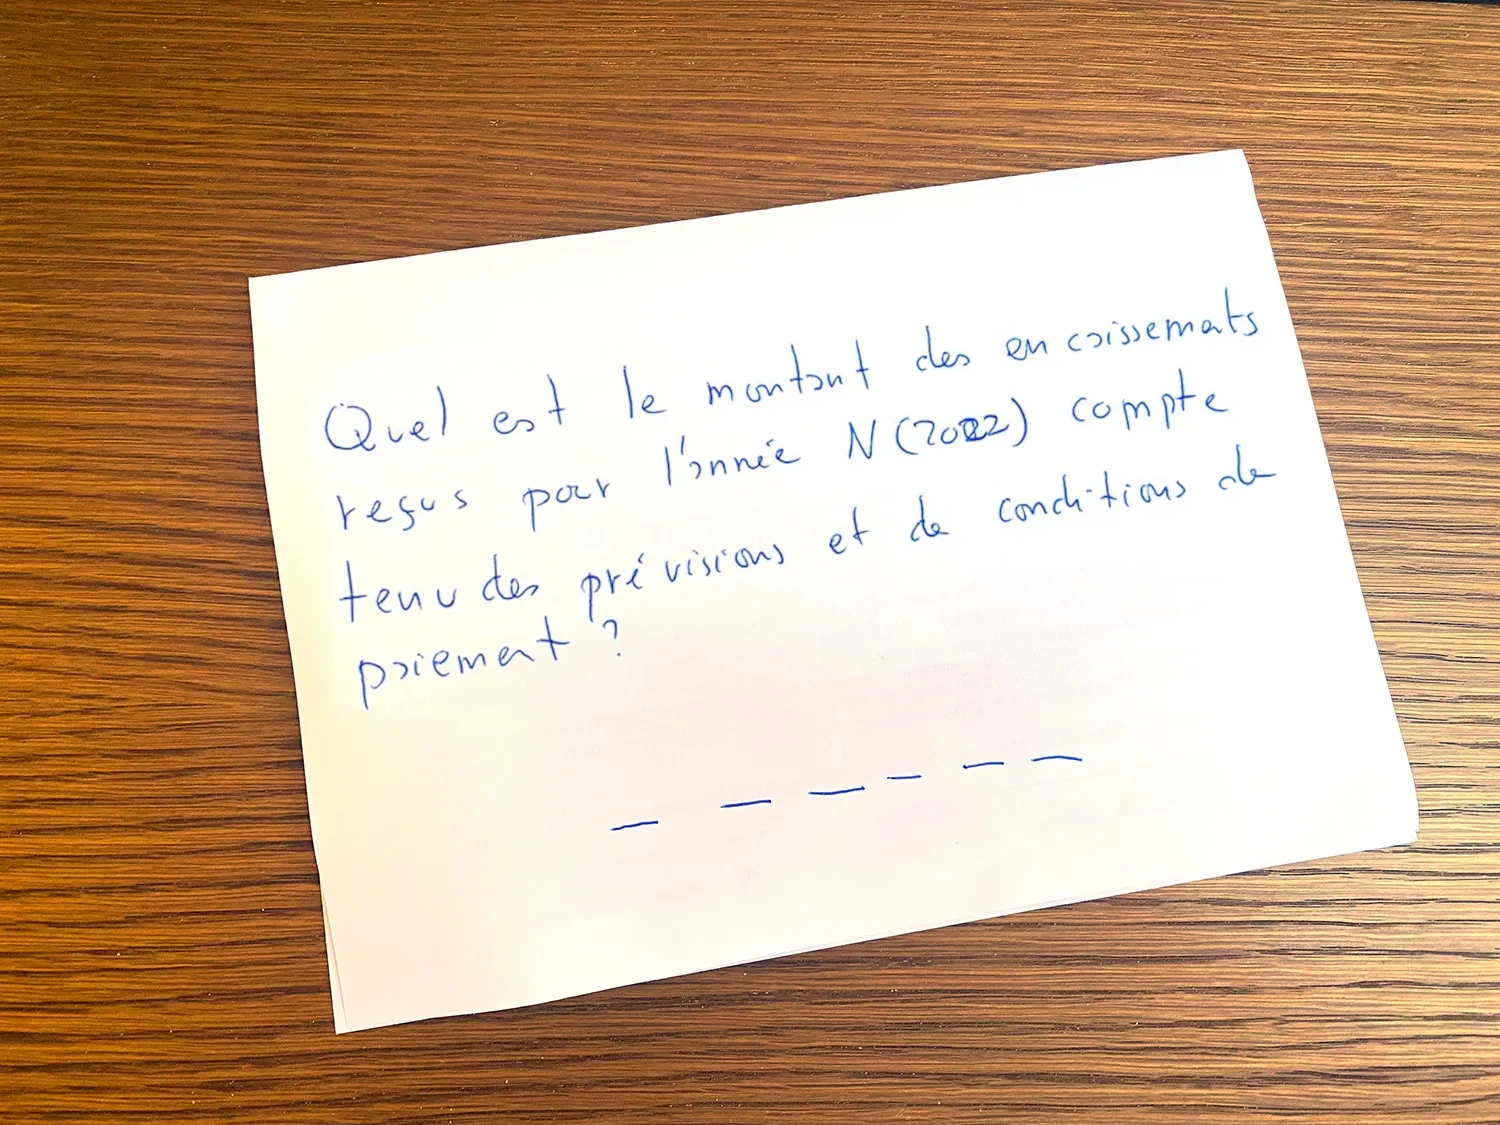 Quel est le montant des encaissemats
reçus pour l'année N (2022) compte
tenu des prévisions et de conditions de
paiement ?
_ _ _ _ _ _